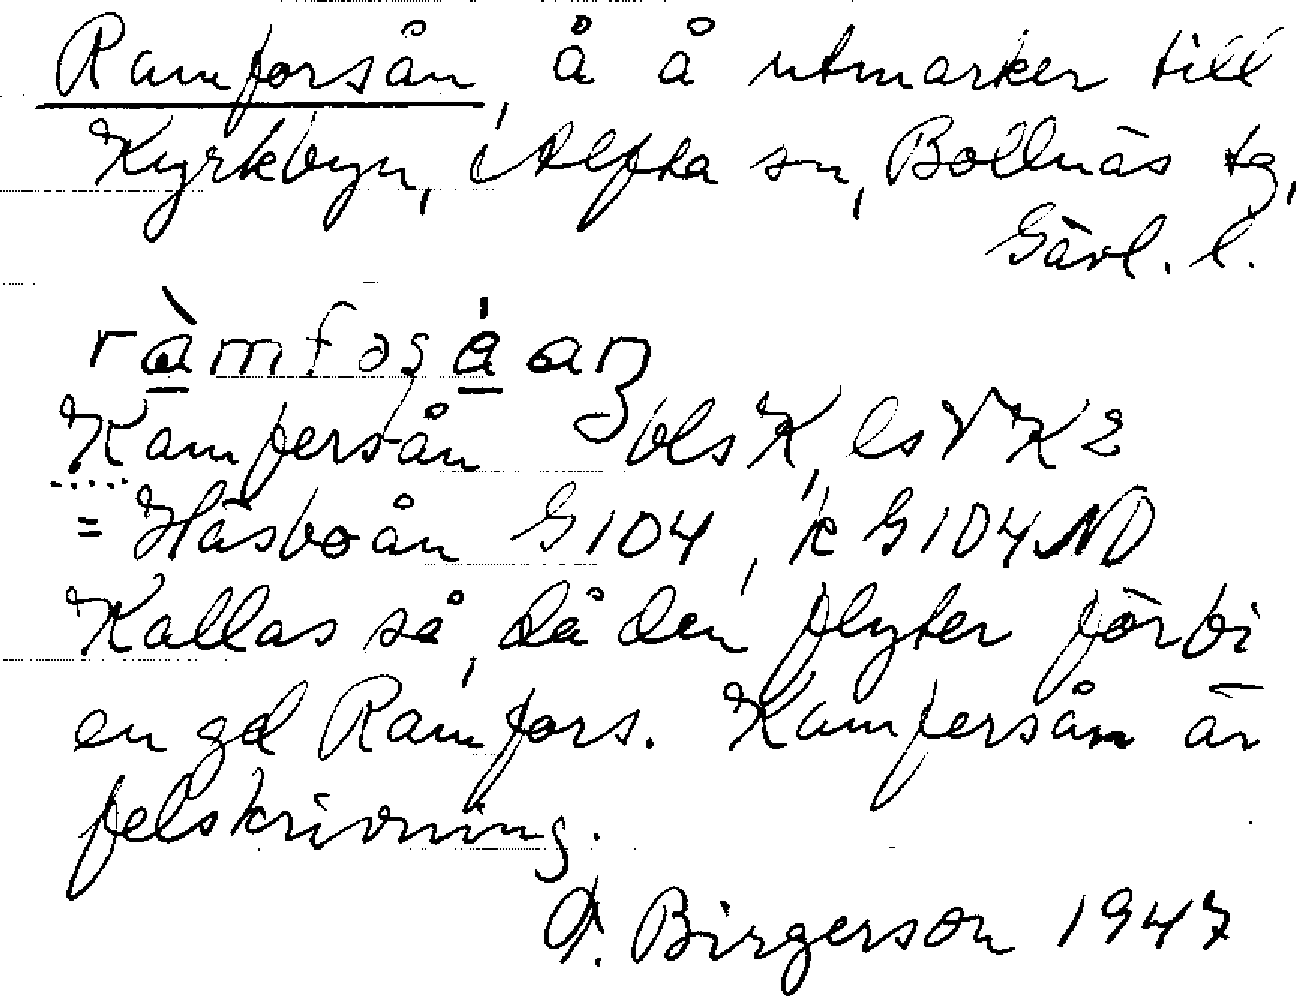 Ramforsån, å å utmarker till
Kyrkbyn, i Alfta sn, Bollnäs tg,
Gävl. l.
Kamfersån bls K, ls V K 2
= Häsboån G104, k G104 NO
Kallas så, då den flyter förbi
en gd Ramfors. Kamfersån är
felskrivning.
F. Birgerson 1947